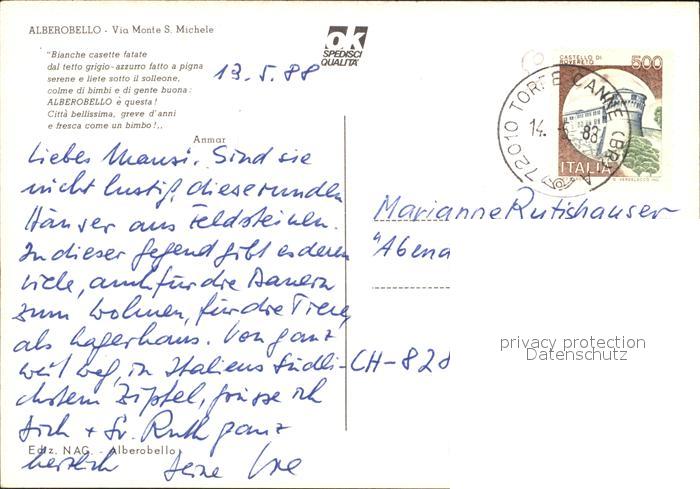 ALBEROBELLO - Via Monte S. Michele
"Bianche casette fatate
dal tetto grigio-azzurro fatto a pigna
serene e liete sotto il solleone,
colme di bimbi e di gente buona:
ALBEROBELLO è questa!
Città bellissima, greve d'anni
e fresca come un bimbo!,,
Anmar
ok
SPEDISCI
QUALITA'
CASTELLO DI
ROVERETO
500
ITALIA
72010 TORRE CANNE (BR)
14. 88
13. 5. 88
Liebes Mausi. Sind sie
nicht lustig, diese runden
Häuser aus Feldsteinen.
In dieser Gegend gibt es deren
viele, auch für die Bauern
zum Wohnen, für die Tiere,
als Lagerhaus. Von ganz
weit weg, in Italiens südli-
chstem Zipfel, grüsse ich
Dich + Fr. Ruth ganz
herzlich Deine
Marianne Rutishauser
"Abena
CH-828
privacy protection
Datenschutz
Ediz. NAG. - Alberobello